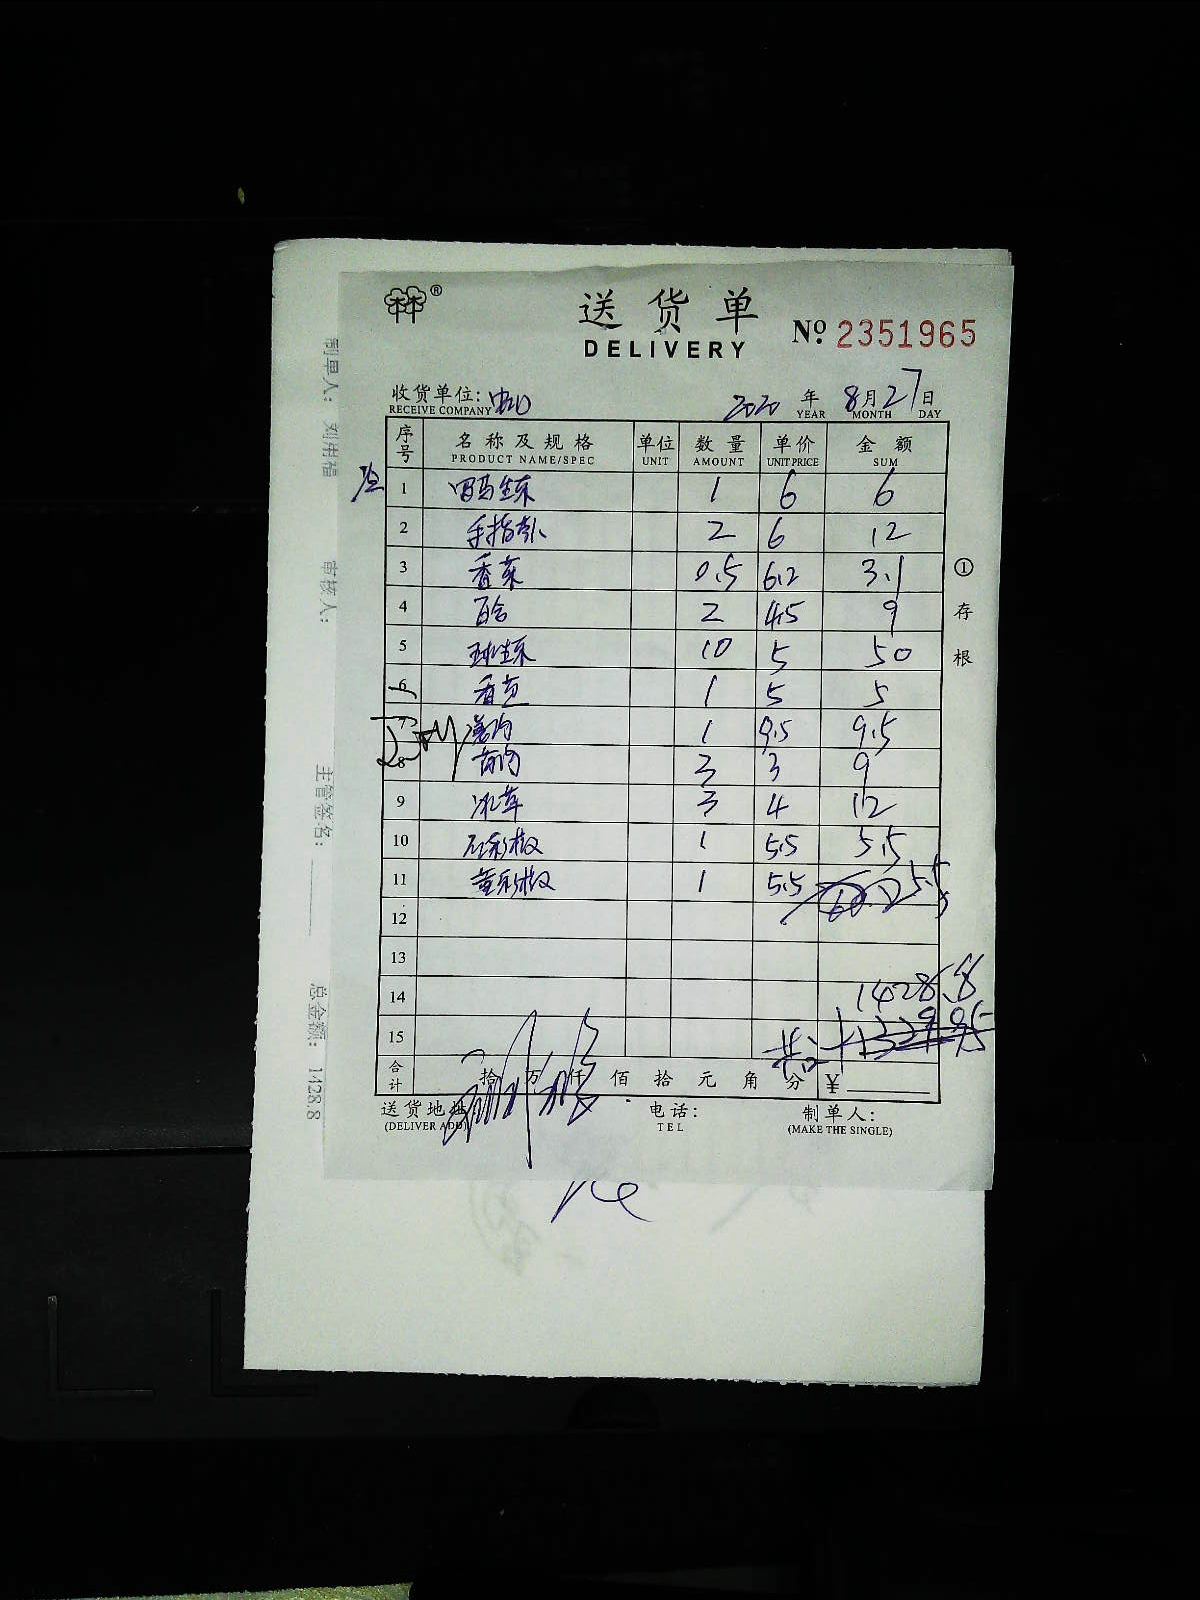 送货单
DELIVERY
Nº 2351965
收货单位:
RECEIVE COMPANY
2020 年 8月27日
YEAR MONTH DAY
序号 名称及规格 单位 数量 单价 金额
PRODUCT NAME/SPEC UNIT AMOUNT UNIT PRICE SUM
1 罗马生菜 1 6 6
2 手指 2 6 12
3 香菜 0.5 6.2 3.1
4 百合 2 4.5 9
5 球生菜 10 5 50
6 香芹 1 5 5
7 1 9.5 9.5
8 3 3 9
9 冰草 3 4 12
10 红彩椒 1 5.5 5.5
11 黄彩椒 1 5.5 5.5
12
13
14 1428.8
15 共计 1329.95
合计 拾 万 仟 佰 拾 元 角 分 ¥
送货地址: 电话: 制单人:
(DELIVER ADD) TEL (MAKE THE SINGLE)
①存根
制单人: 刘书福 审核人: 主管签名: 总金额: 1428.8